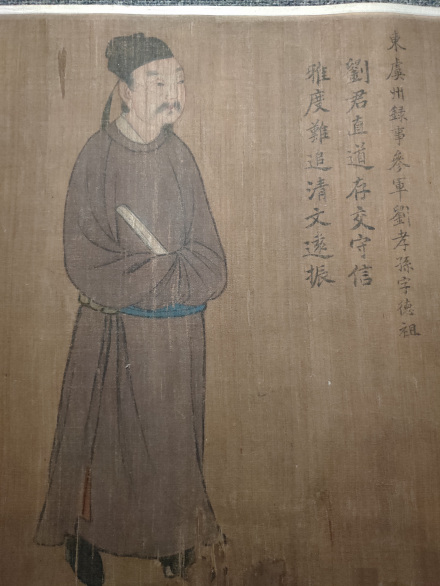 東虞州録事參軍劉孝孫字德祖
劉君直道存交守信
雅度難追清文遠振